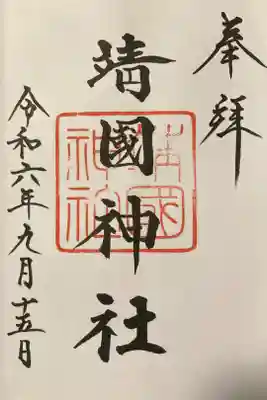 奉拝
靖國神社
靖國神社
令和六年九月十五日